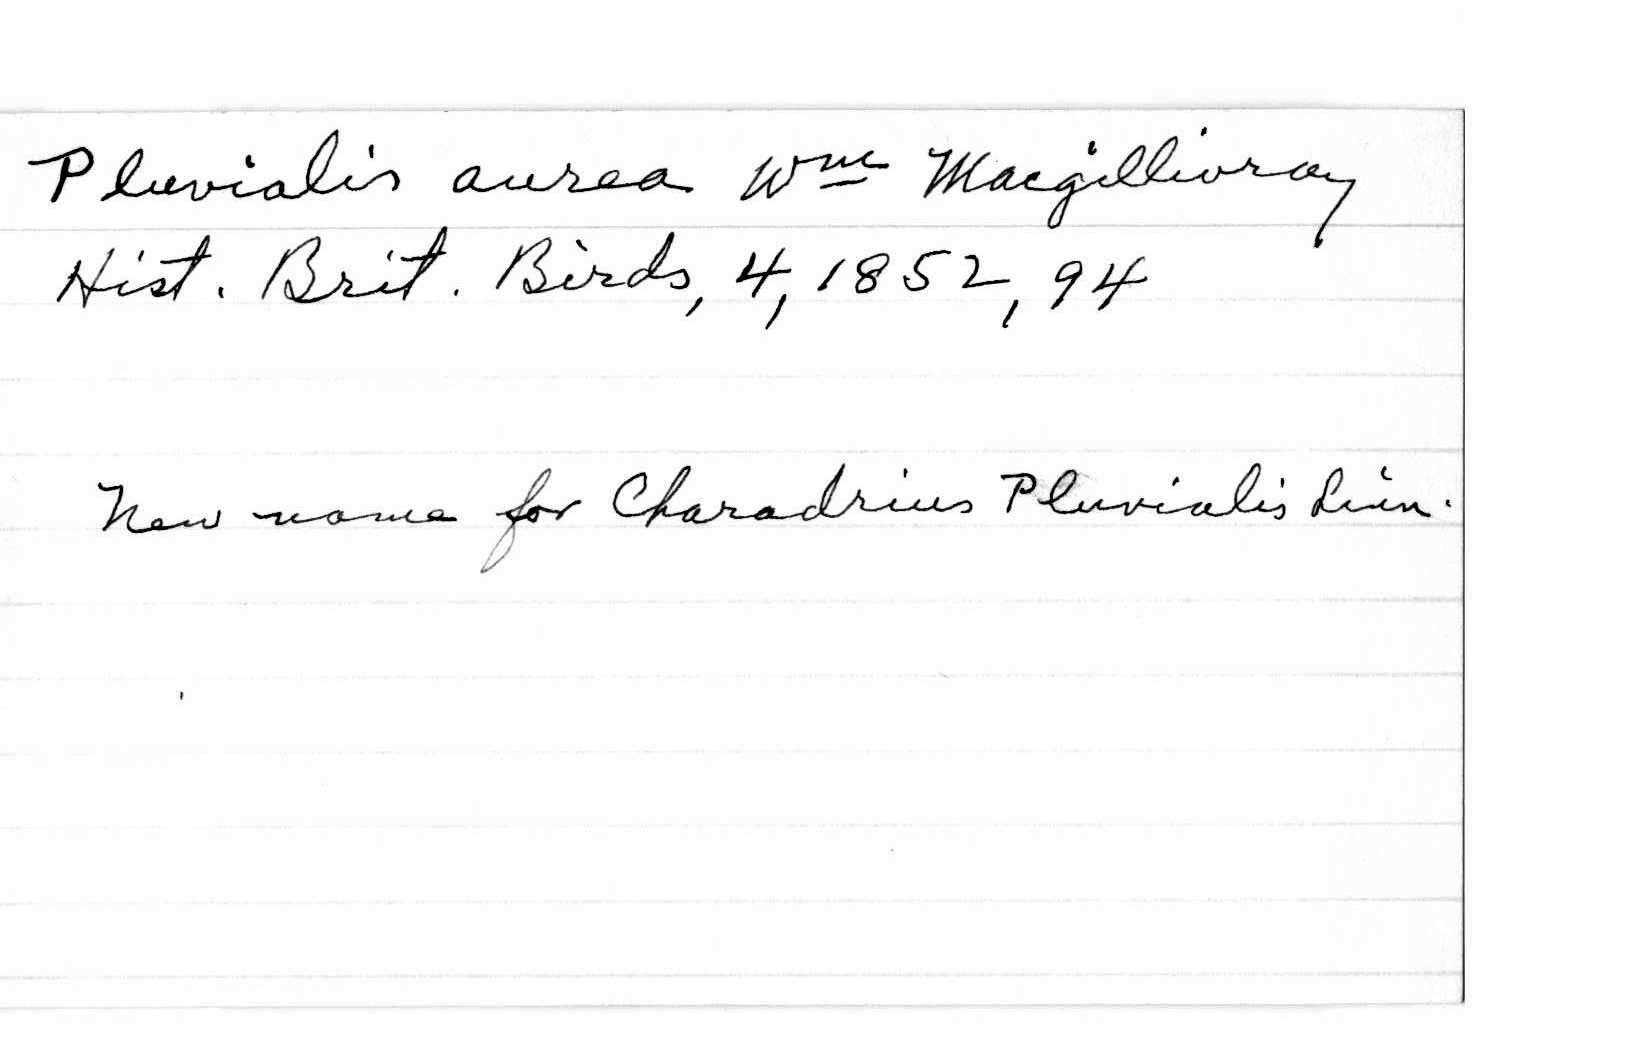 Pluvialis aurea Wm Macgillivray
Hist. Brit. Birds, 4, 1852, 94
New name for Charadrius Pluvialis Linn.